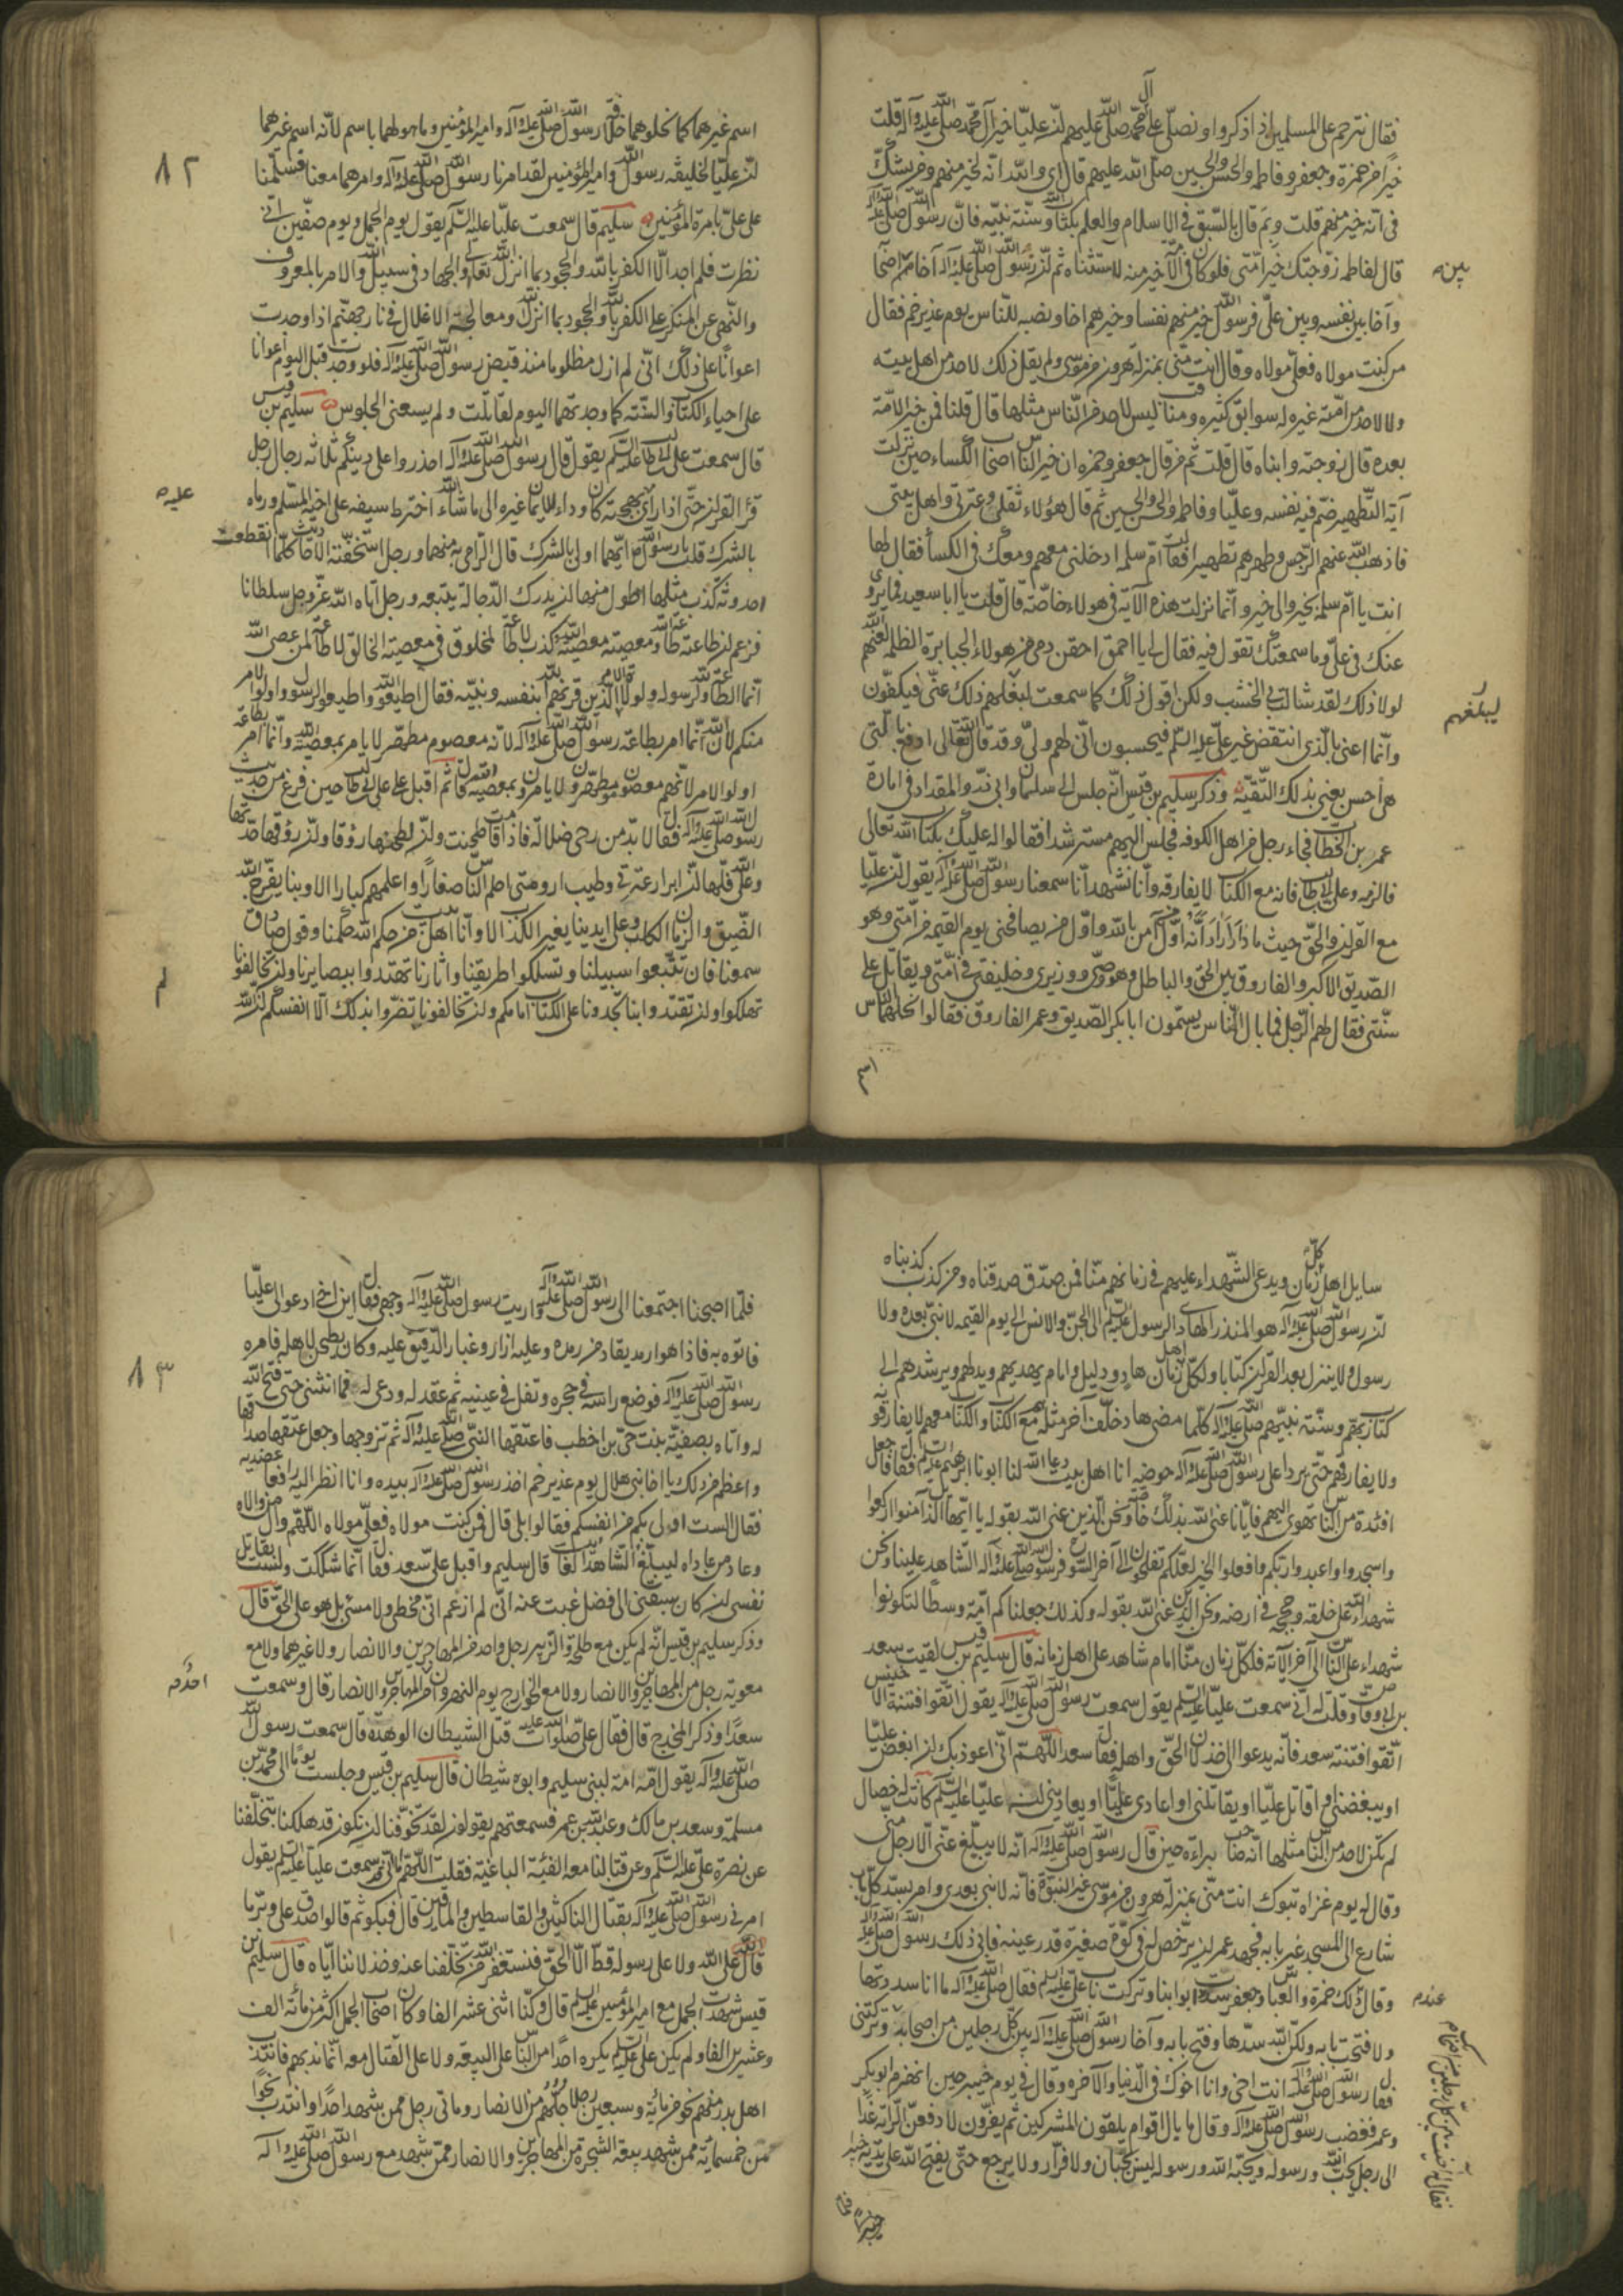 فقال نترحم على المسلمين اذا ذكروا ونصلى على محمد وآل محمد صلى الله عليهم لان عليا خير آل محمد صلى الله عليه وآله قلت
خير من حمزة وجعفر وفاطمه والحسن والحسين صلى الله عليهم قال اى والله انه لخير منهم ومن يشك
فى انه خير منهم قلت وبم قال بالسبق فى الاسلام والعلم بكتاب الله وسنة نبيه فان رسول الله صلى الله عليه وآله
قال لفاطمه زوجتك خير امتى فلو كان فى الامة خير منه لاستثناه ثم ان رسول الله صلى الله عليه وآله آخا بين اصحابه
بين
وآخا بين نفسه وبين على فرسول الله خيرهم نفسا وخيرهم اخا ونصبه للناس يوم غدير خم فقال
من كنت مولاه فعلى مولاه وقال انت منى بمنزلة هرون من موسى ولم يقل ذلك لاحد من اهل بيته
ولا لاحد من امته غيره له سوابق كثيره ومناقب ليس لاحد من الناس مثلها قال قلنا فمن خير الامة
بعده قال زوجته وابناه قال قلت ثم من قال جعفر وحمزه ان خير الناس اصحاب الكساء حين نزلت
آية التطهير ضم فيه نفسه وعليا وفاطمه والحسن والحسين ثم قال هؤلاء ثقلى وعترتى واهل بيتى
فاذهب الله عنهم الرجس وطهرهم تطهيرا فقالت ام سلمه ادخلنى معهم ومعك فى الكساء فقال لها
انت يا ام سلمه بخير والى خير وانما نزلت هذه الآية فى هولاء خاصة قال قلت يا ابا سعيد فما يروى
عنك فى على وما سمعتك تقول فيه فقال لى يا احمق احقن دمى من هولاء الجبابرة الظلمه لعنهم الله
لولا ذلك لقد شالت بى الخشب ولكن اقول ذلك كما سمعت ليبلغهم ذلك عنى فيكفون
ليبلغهم
وانما اعنى بالذى انتقض غير على عليه السلم فيحسبون انى لهم ولى وقد قال الله تعالى ادفع بالتى
هى احسن يعنى بذلك التقية وذكر سليم بن قيس انه جلس الى سلمان وابى ذر والمقداد فى امارة
عمر بن الخطاب فجاء رجل من اهل الكوفه فجلس اليهم مسترشدا فقالوا له عليك بكتاب الله تعالى
فالزمه وعلى بن ابى طالب فانه مع الكتاب لا يفارقه وانا نشهد انا سمعنا رسول الله صلى الله عليه وآله يقول ان عليا
مع القران والحق حيث ما دار دار انه اول من آمن بالله واول من يصافحنى يوم القيمه من امتى وهو
الصديق الاكبر والفاروق بين الحق والباطل وهو وصى ووزيرى وخليفتى فى امتى ويقاتل على
سنتى فقال لهم الرجل فما بال الناس يسمون ابا بكر الصديق وعمر الفاروق فقالوا نحلهما الناس
اسم غيرهما كما نحلوهما خلافة رسول الله صلى الله عليه وآله وامير المؤمنين وما هو لهما باسم لانه اسم غيرهما
ان عليا لخليفة رسول الله وامير المؤمنين لقد امرنا رسول الله صلى الله عليه وآله وامرهما معنا فسلمنا
٨٢
على على بامرة المؤمنين سليم قال سمعت عليا عليه السلم يقول يوم الجمل ويوم صفين انى
نظرت فلم اجد الا الكفر بالله والجحود بما انزل الله تعالى والجهاد فى سبيل الله والامر بالمعروف
والنهى عن المنكر على الكفر بالله والجحود بما انزل الله ومعالجة الاغلال فى نار جهنم اذا وجدت
اعوانا على ذلك انى لم ازل مظلوما منذ قبض رسول الله صلى الله عليه وآله فلو وجدت قبل اليوم اعوانا
على احياء الكتاب والسنة كما وجدتهما اليوم لقاتلت ولم يسعنى الجلوس سليم بن قيس
قال سمعت على بن ابى طالب عليه السلم يقول قال رسول الله صلى الله عليه وآله احذروا على دينكم ثلاثه رجال رجل
قرأ القران حتى اذا راى عليه بهجته كان رداء للايمان غيره الى ما شاء الله اخترط سيفه على اخيه المسلم ورماه
عليه
بالشرك قلت يا رسول الله ايهما اولى بالشرك قال الرامى به منهما ورجل استخفته الاحاديث كلما انقطعت
احدوثة كذب مثلها اطول منها ان يدرك الدجاله يتبعه ورجل آتاه الله عز وجل سلطانا
فزعم ان طاعته طاعة الله ومعصيته معصية الله وكذب لا طاعة لمخلوق فى معصية الخالق لا طاعة لمن عصى الله
انما الطاعة لله ولرسوله ولولاة الامر الذين قرنهم الله بنفسه ونبيه فقال اطيعوا الله واطيعوا الرسول واولوا الامر
منكم لان الله انما امر بطاعة رسول الله صلى الله عليه وآله لانه معصوم مطهر لا يامر بمعصية الله وانما امر بطاعة
اولوا الامر لانهم معصومون مطهرون لا يامرون بمعصية الله قال ثم اقبل على على بن ابى طالب حين فرغ من حديث
رسول الله صلى الله عليه وآله فقال لا بد من رحى ضلالة فاذا قامت طحنت وان لطحنها روقا وان روقها حدتها
وعلى الله فلها ان ابرار عترتى وطيب ارومتى احلم الناس صغارا واعلمهم كبارا الا وبنا يفرج الله
الضيق والزمان الكلب وعلى ايدينا يغير الكذب الا وانا اهل بيت من حكم الله حكمنا وقول صادق
سمعنا فان تتبعوا سبيلنا وتسلكوا طريقنا واثارنا تهتدوا ببصايرنا وان تخالفونا
تهلكوا وان تقتدوا بنا تجدونا على الكتاب امامكم وان تخالفونا تضروا بذلك الا انفسكم ان الله
سايل اهل كل زمان ويدعى الشهداء عليهم فى زمانهم منا فمن صدق صدقناه ومن كذب كذبناه
ان رسول الله صلى الله عليه وآله هو المنذر الهادى الرسول عليه السلم الى الجن والانس الى يوم القيمه لا نبى بعده ولا
رسول ولا ينزل بعد القران كتابا ولكل اهل زمان هاد ودليل وامام يهديهم ويدلهم ويرشدهم الى
كتاب ربهم وسنة نبيهم صلى الله عليه وآله كلما مضى هاد خلف آخر مثله هم مع الكتاب والكتاب معهم لا يفارقونه
ولا يفارقهم حتى يردا على رسول الله صلى الله عليه وآله حوضه انا اهل بيت دعا الله لنا ابونا ابرهيم عليه السلم فقال فاجعل
افئدة من الناس تهوى اليهم فايانا عنى الله بذلك خاصة ونحن الذين عنى الله بقوله يا ايها الذين آمنوا اركعوا
واسجدوا واعبدوا ربكم وافعلوا الخير لعلكم تفلحون الى آخر السورة فرسول الله صلى الله عليه وآله الشاهد علينا ونحن
شهداء الله على خلقه وحججه فى ارضه ونحن الذين عنى الله بقوله وكذلك جعلناكم امة وسطا لتكونوا
شهداء على الناس الى آخر الآية فلكل زمان منا امام شاهد على اهل زمانه قال سليم بن قيس لقيت سعد
بن ابى وقاص وقلت له انى سمعت عليا عليه السلم يقول سمعت رسول الله صلى الله عليه وآله يقول اتقوا فتنة الاخينس
اتقوا فتنة سعد فانه يدعوا الى خذلان الحق واهله فقال سعد اللهم انى اعوذ بك ان ابغض عليا
او يبغضنى او اقاتل عليا او يقاتلنى او اعادى عليا او يعادينى ان عليا عليه السلم كانت له خصال
لم تكن لاحد من الناس مثلها انه صاحب براءة حين قال رسول الله صلى الله عليه وآله انه لا يبلغ عنى الا رجل منى
وقال له يوم غزاه تبوك انت منى بمنزلة هرون من موسى غير النبوة فانه لا نبى بعدى وامر بسد كل باب
شارع الى المسجد غير بابه فجهد عمر ان يرخص له فى كوة صغيرة قدر عينه فابى ذلك رسول الله صلى الله عليه وآله
وقال ذلك حمزة والعباس وجعفر سددت ابوابنا وتركت باب على عليه السلم فقال صلى الله عليه وآله ما انا سددتها
ولا فتحت بابه ولكن الله سدها وفتح بابه وآخا رسول الله صلى الله عليه وآله بين كل رجلين من اصحابه وتركتنى
فقال رسول الله صلى الله عليه وآله انت اخى وانا اخوك فى الدنيا والآخره وقال فى يوم خيبر حين انهزم ابو بكر
وعمر فغضب رسول الله صلى الله عليه وآله وقال ما بال اقوام يلقون المشركين ثم يفرون لادفعن الراية غدا
الى رجل يحب الله ورسوله ويحبه الله ورسوله ليس بجبان ولا فرار ولا يرجع حتى يفتح الله على يديه خيبر
فلما اصبحنا اجتمعنا الى رسول الله صلى الله عليه وآله واريت رسول الله صلى الله عليه وآله وجهى فقال اين اخى ادعوا لى عليا
فاتوه به فاذا هو ارمد يقاد من رمده وعليه ازار وغبار الدقيق عليه وكان يطحن لاهله فامره
٨٣
رسول الله صلى الله عليه وآله فوضع راسه فى حجره وتفل فى عينيه ثم عقد له ودعى له فما انثنى حتى فتح الله
له واتاه بصفية بنت حى بن اخطب فاعتقها النبى صلى الله عليه وآله ثم تزوجها وجعل عتقها صداقها
واعظم من ذلك يا اخا بنى هلال يوم غدير خم اخذ رسول الله صلى الله عليه وآله بيده وانا انظر اليه رافعا عضديه
فقال الست اولى بكم من انفسكم فقالوا بلى قال فمن كنت مولاه فعلى مولاه اللهم وال من والاه
وعاد من عاداه ليبلغ الشاهد الغائب قال سليم واقبل على سعد فقال انما شككت ولست بقاتل
نفسى ان كان سبقنى الى فضل غبت عنه انى لم ازعم انى مخطى ولا مسئ بل هو على الحق قال
وذكر سليم بن قيس انه لم يكن مع طلحة والزبير رجل واحد من المهاجرين والانصار ولا غيرهما ولا مع
معوية رجل من المهاجرين والانصار ولا مع الخوارج يوم النهروان احد من المهاجرين والانصار قال وسمعت
سعدا وذكر المخدج قال فقال على صلوات الله عليه قتل الشيطان الوهدة قال سمعت رسول الله
صلى الله عليه وآله يقول امه امة لبنى سليم وابوه شيطان قال سليم بن قيس وجلست يوما الى محمد بن
مسلمة وسعد بن مالك وعبد الله بن عمر فسمعتهم يقولون لقد تخوفنا ان نكون قد هلكنا بتخلفنا
عن نصرة على عليه السلم وعن قتالنا معه الفئة الباغية فقلت اللهم سمعت عليا عليه السلم يقول
امرنى رسول الله صلى الله عليه وآله بقتال الناكثين والقاسطين والمارقين قال فبكوا ثم قالوا صدق على وبر ما
قال على الله ولا على رسوله قط الا الحق فنستغفر الله من تخلفنا عنه وخذلاننا اياه قال سليم بن
قيس شهدت الجمل مع امير المؤمنين عليه السلم قال وكنا اثنى عشر الفا وكان اصحاب الجمل اكثر من مائة الف
وعشرين الفا ولم يكن على عليه السلم يكره احدا من الناس على البيعة ولا على القتال معه انما ندبهم فانتدب
اهل بدر منهم نحو من مائة وسبعين رجلا جلهم من الانصار وماتى رجل ممن شهد احدا وانتدب نحوا
من خمسمائة ممن شهد بيعة الشجرة من المهاجرين والانصار ممن شهد مع رسول الله صلى الله عليه وآله